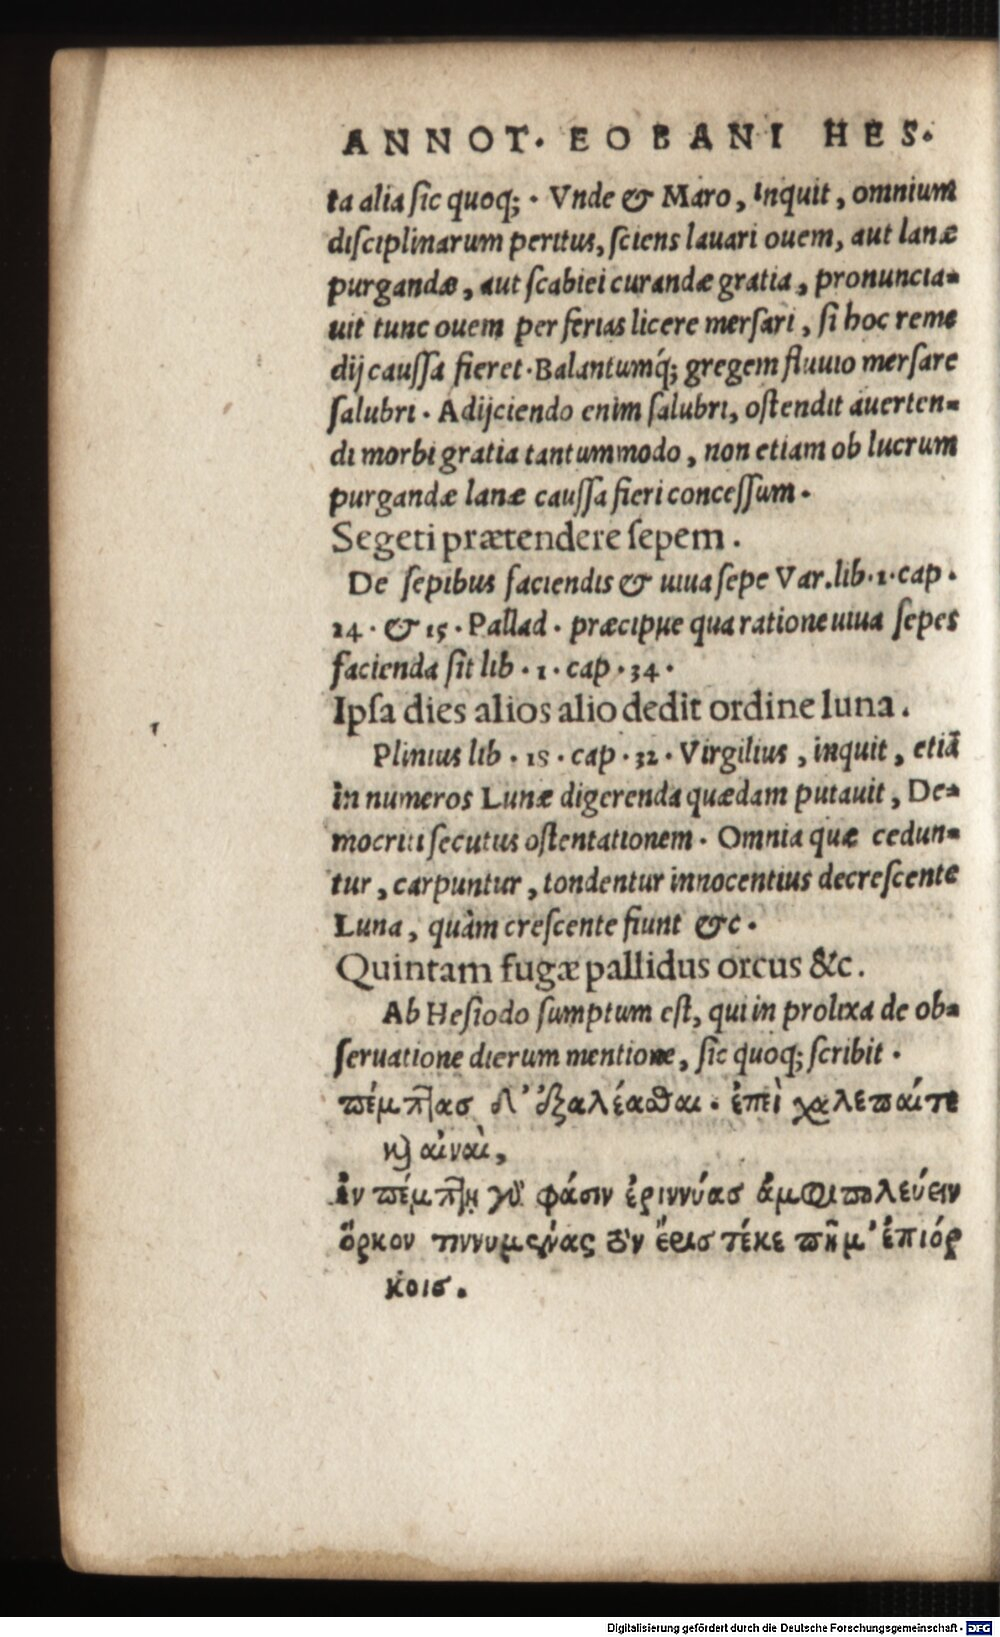 ANNOT. EOBANI HES.
ta alia ſic quoq;. Vnde & Maro, inquit, omnium
diſciplinarum peritus, ſciens lauari ouem, aut lanæ
purgandæ, aut ſcabiei curandæ gratia, pronuncia-
uit tunc ouem per ferias licere merſari, ſi hoc reme
dij cauſſa fieret. Balantumq́; gregem fluuio merſare
ſalubri. Adijciendo enim ſalubri, oſtendit auerten-
di morbi gratia tantummodo, non etiam ob lucrum
purgandæ lanæ cauſſa fieri conceſſum.
Segeti prætendere ſepem.
De ſepibus faciendis & uiua ſepe Var. lib. 1. cap.
14. & 15. Pallad. præcipue qua ratione uiua ſepes
facienda ſit lib. 1. cap. 34.
Ipſa dies alios alio dedit ordine luna.
Plinius lib. 18. cap. 32. Virgilius, inquit, etiā
in numeros Lunæ digerenda quædam putauit, De-
mocriti ſecutus oſtentationem. Omnia quæ cedun-
tur, carpuntur, tondentur innocentius decreſcente
Luna, quàm creſcente fiunt &c.
Quintam fugæ pallidus orcus &c.
Ab Heſiodo ſumptum eſt, qui in prolixa de ob-
ſeruatione dierum mentione, ſic quoq; ſcribit.
πέμπτας δ' ἐξαλέασθαι. ἐπεὶ χαλεπαί τε
καὶ αἰναὶ,
ἐν πέμπτῃ γὰρ φάσιν ἐριννύας ἀμφιπολεύειν
ὅρκον τιννυμένας τὸν ἔρις τέκε πῆμ' ἐπιόρ
κοις.
Digitalisierung gefördert durch die Deutsche Forschungsgemeinschaft - DFG